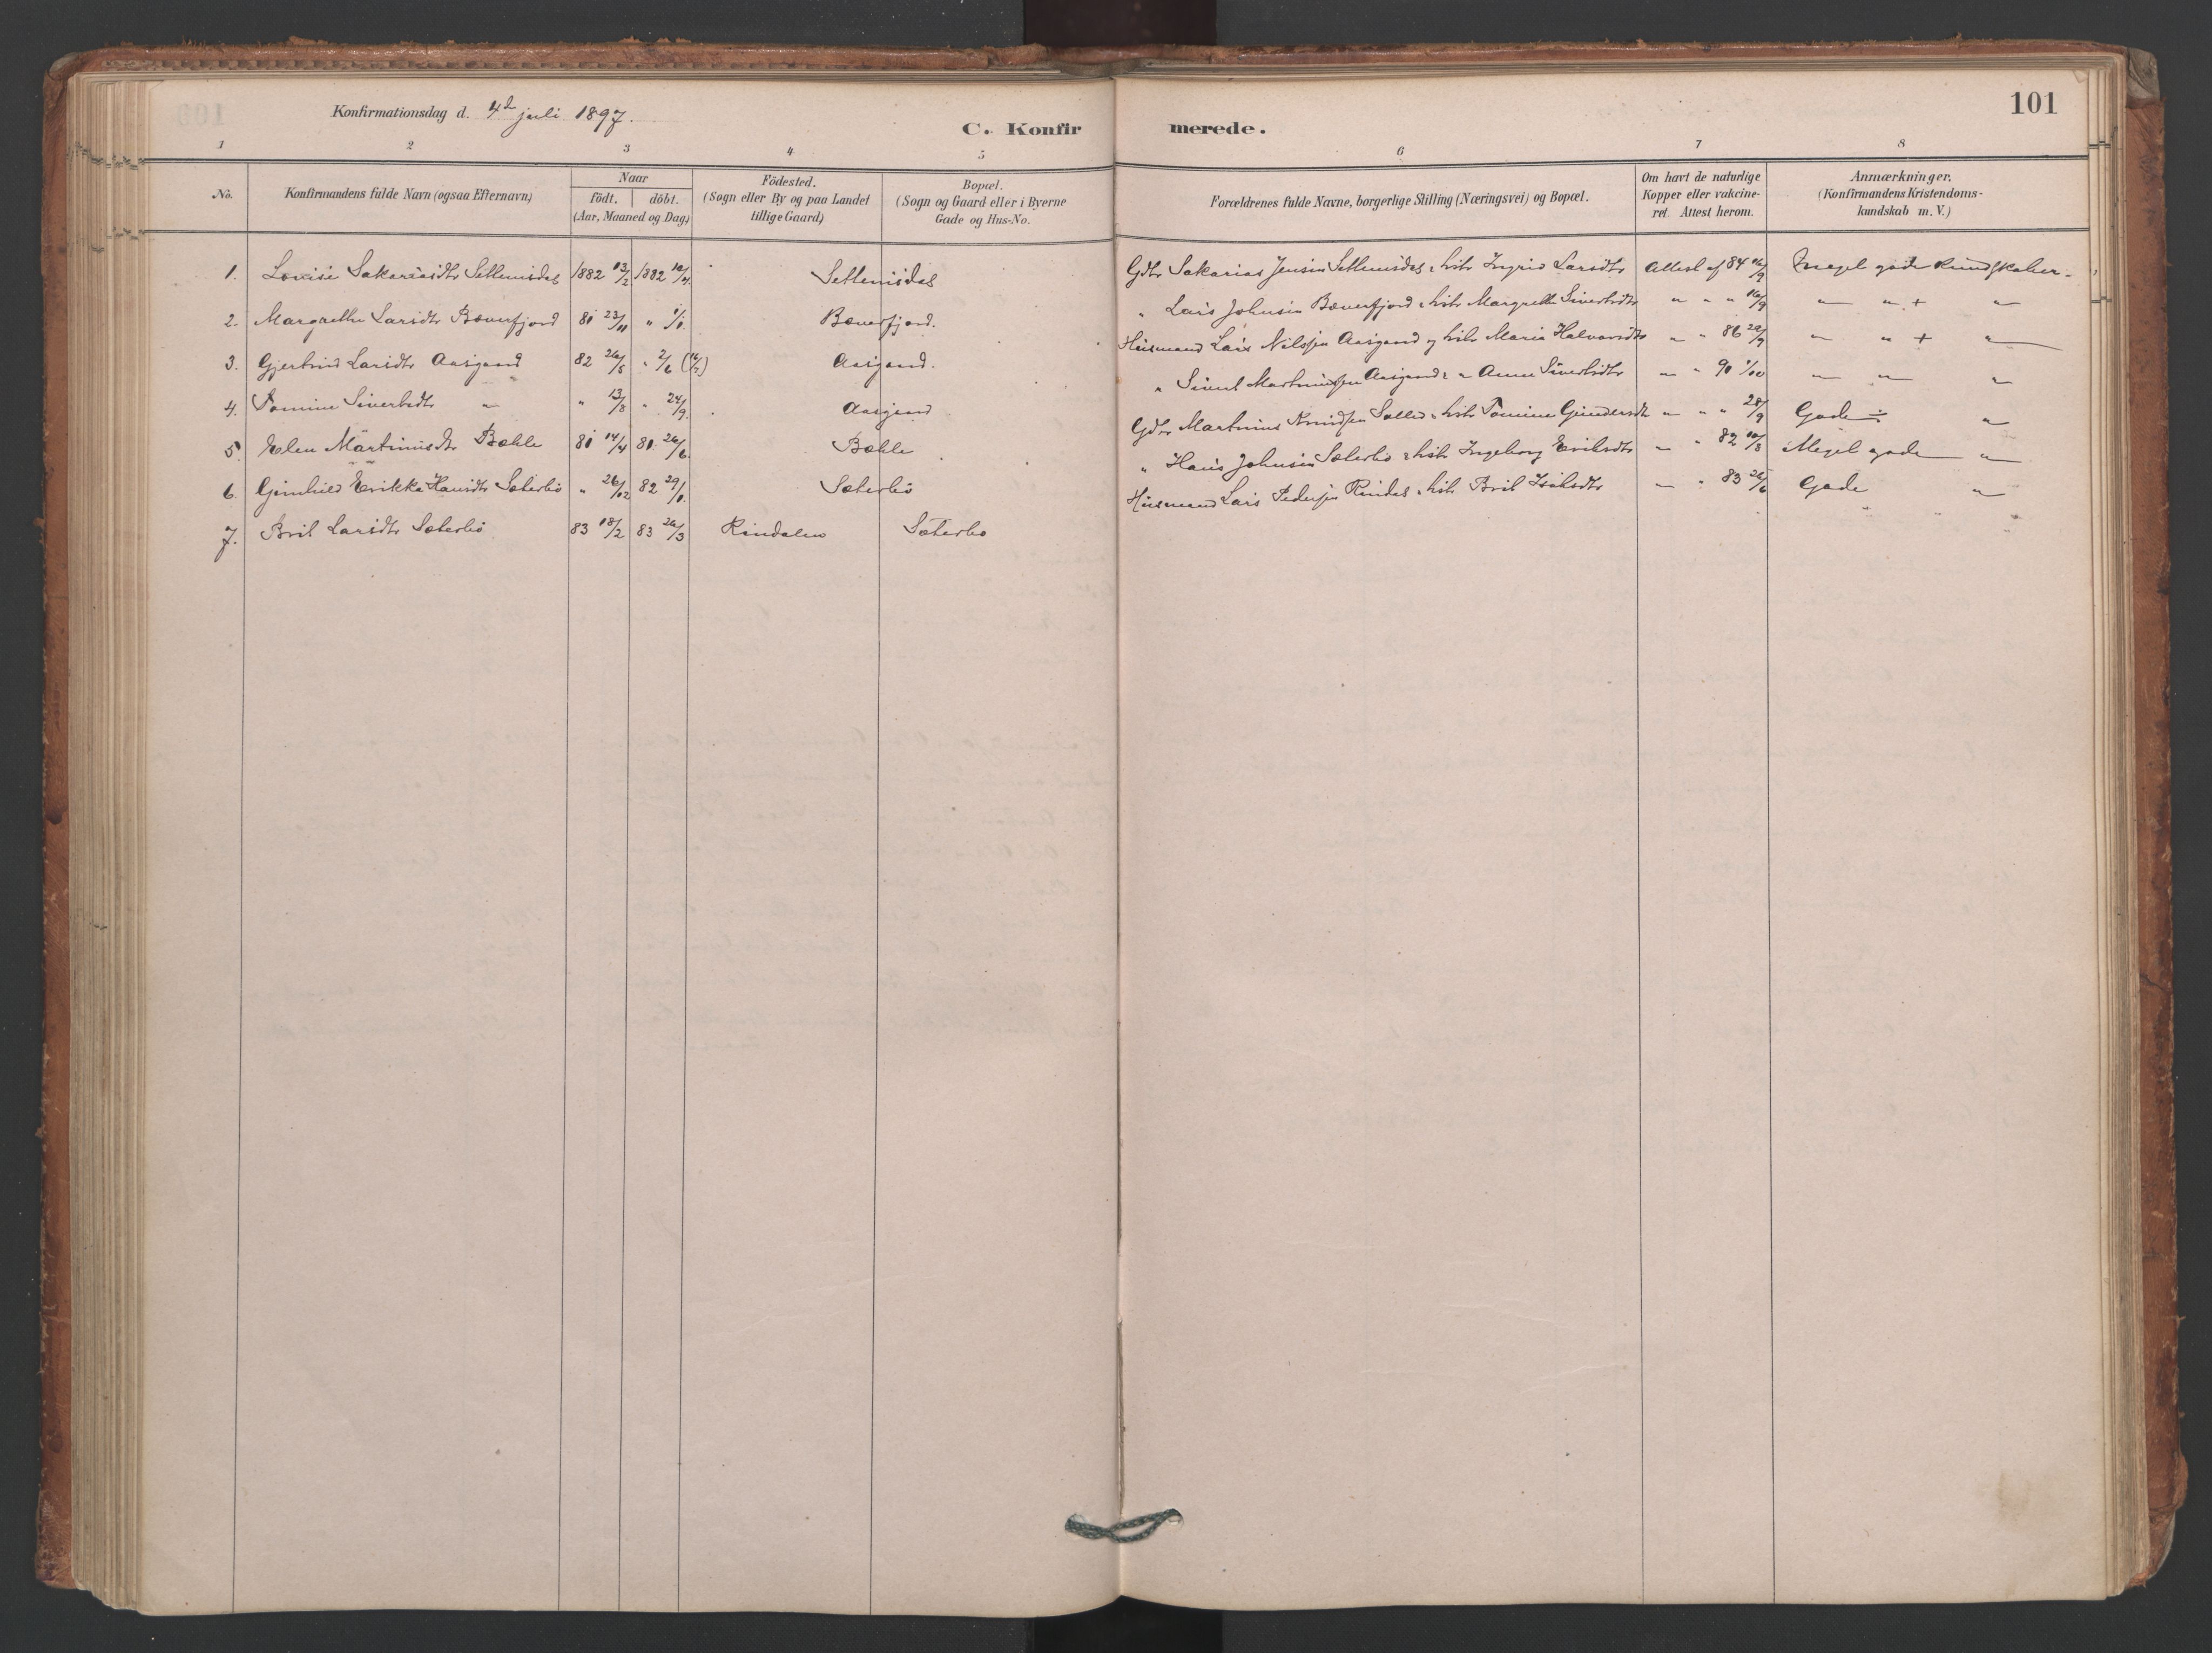 Konfirmationsdag d. 4de juli 1897.
C. Konfirmerede.
101
1 2 3 4 5 6 7 8
No.
Konfirmandens fulde Navn (ogsaa Efternavn)
Naar
födt. döbt.
(Aar, Maaned og Dag)
Födested.
(Sogn eller By og paa Landet
tillige Gaard)
Bopæl.
(Sogn og Gaard eller i Byerne
Gade og Hus-No.
Forældrenes fulde Navne, borgerlige Stilling (Næringsvei) og Bopæl.
Om havt de naturlige
Kopper eller vakcine-
ret. Attest herom.
Anmærkninger.
(Konfirmandens Kristendoms-
kundskab m. V.)
1. Lovise Sakariasdtr Settemsdal 1882 13/2 1882 10/4. Settemsdal Gdbr Sakarias Jensen Settemsdal & hstr Ingrid Larsdtr Attest af 84 16/9 Meget gode kundskaber.
2. Margrethe Larsdtr Bæverfjord 81 23/11 " 1/1. Bæverfjord. " Lars Johnsen Bæverfjord & hstr Margrethe Sivertsdtr " " " 16/9 " " + "
3. Gjertrud Larsdtr Aasgaard 82 26/5 " 2/6 Aasgaard. Husmand Lars Nilssen Aasgaard og hstr Maria Halvorsdtr " " 86 22/9 " " + "
4. Tomine Sivertsdtr " " 13/8 " 24/9. Aasgaard " Sivert Martinussen Aasgaard & " Anne Sivertsdtr " " 90 1/10 " " "
5. Elen Martinusdtr Bæhle 81 14/4 81 26/6. Bæhle Gdbr Martinus hstr Tomine Gundersdtr " " " 28/9 Gode ÷ "
6. Gunhild Erikka Hansdtr Sæterbø " 26/12 82 29/1. Sæterbø " Hans Johnsen Sæterbø & hstr Ingeborg Eriksdtr " " 82 10/8 Meget gode "
7. Brit Larsdtr Sæterbø 83 18/2 83 26/3 Rindalen Sæterbø Husmand Lars Pedersen Rindal & hstr Brit Isaksdtr " " 83 26/6 Gode "